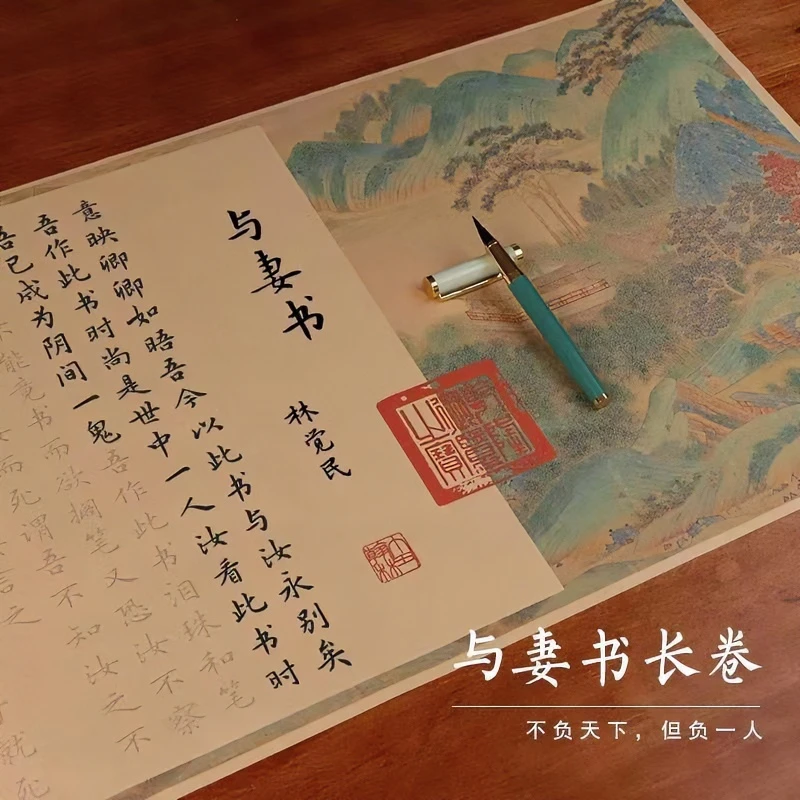 与妻书
林觉民
意映卿卿如晤吾今以此书与汝永别矣
吾作此书时尚是世中一人汝看此书时
吾已成为阴间一鬼吾作此书泪珠和笔
不能竟书而欲搁笔又恐汝不察
汝而死谓吾不知汝之不
言之
就死
与妻书长卷
不负天下，但负一人